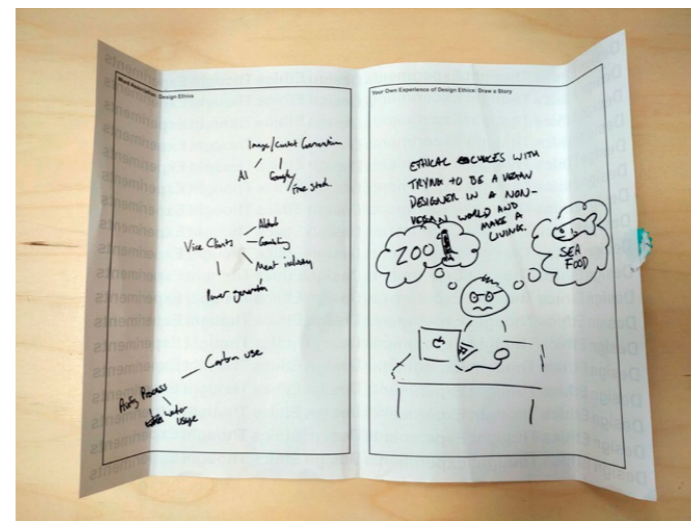 Word Association: Design Ethics
Image/Content Generation
AI
Google/
free stock
Vice Clients
Alcohol
Gambling
Meat industry
Power generation
Carbon use
Process
water
usage
Your Own Experience of Design Ethics: Draw a Story
ETHICAL CHOICES WITH
TRYING TO BE A VEGAN
DESIGNER IN A NON-
VEGAN WORLD AND
MAKE A
LIVING.
ZOO
SEA
FOOD